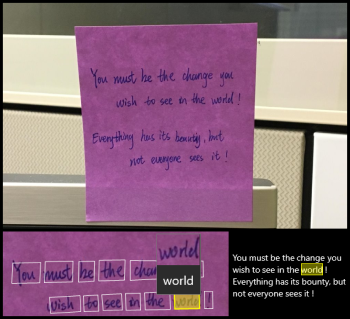 You must be the change you
wish to see in the world!
Everything has its beauty, but
not everyone sees it!
world
You must be the chan
world
wish to see in the world!
You must be the change you
wish to see in the world!
Everything has its bounty, but
not everyone sees it!